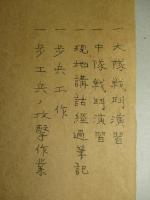 一 大隊戦鬥演習
一 中隊戦鬥演習
一 現地講話経過筆記
一 歩兵工作
一 歩工兵ノ攻撃作業